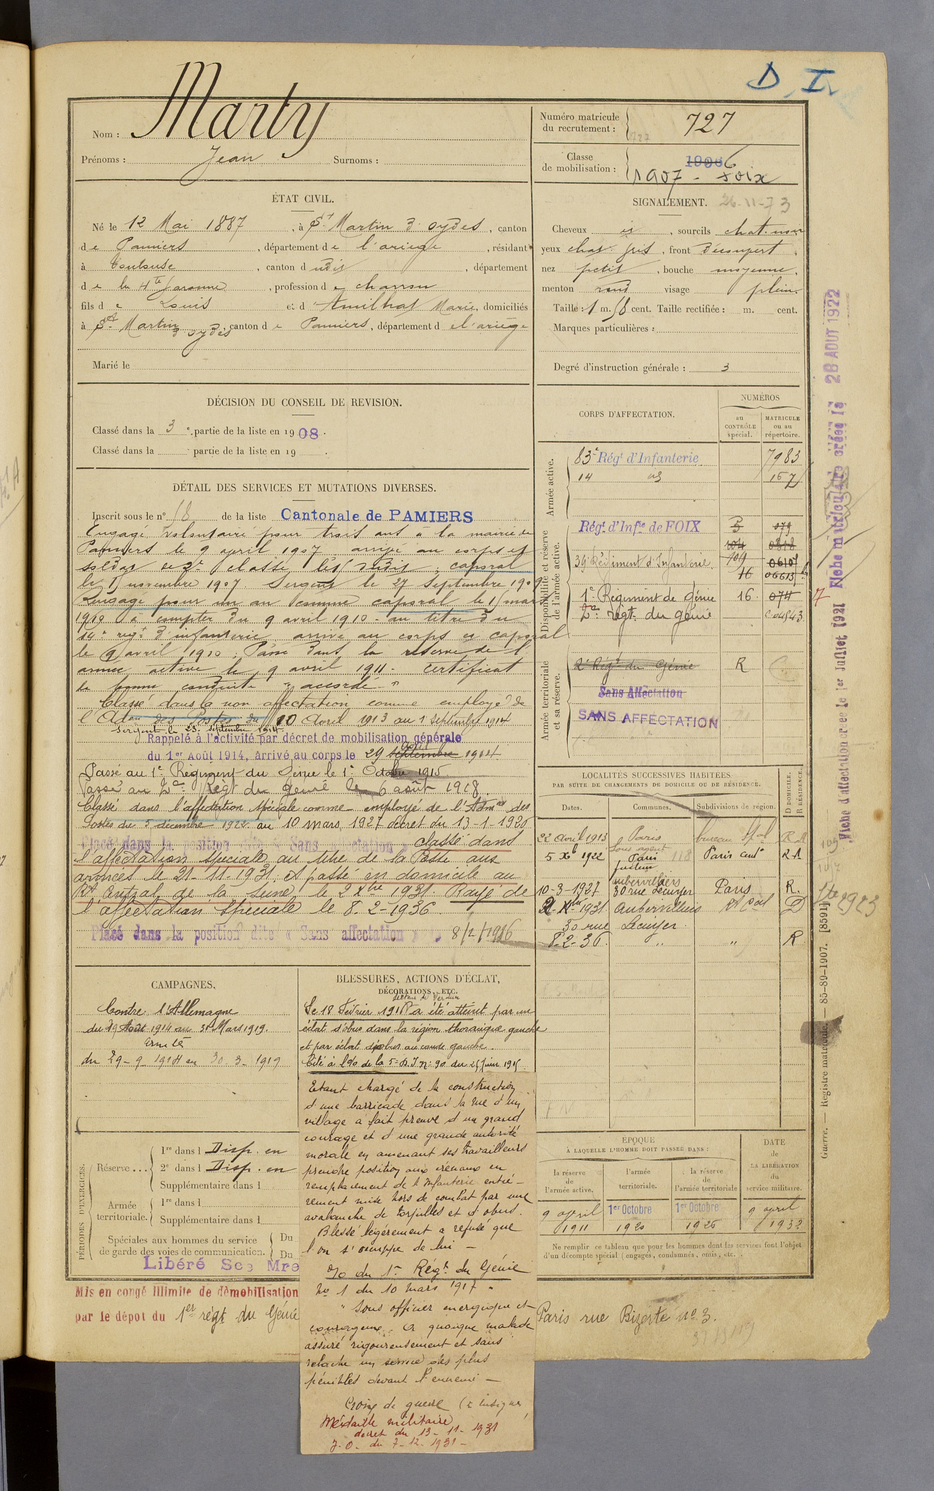 D I
Nom : Marty
Prénoms : Jean Surnoms :
Numéro matricule du recrutement : 727
Classe de mobilisation : 1906
1907 - Foix
ÉTAT CIVIL.
Né le 12 Mai 1887, à St Martin d'oydes, canton
de Pamiers, département de l'ariège, résidant
à Toulouse, canton dudit, département
de la Hte Garonne, profession de charron
fils de Louis et d'Amilhat Marie, domiciliés
à St Martin d'oydes, canton de Pamiers, département de l'ariège
Marié le
SIGNALEMENT. 26-11-73
Cheveux , sourcils chat. noir
yeux chat. gris, front découvert,
nez petit, bouche moyenne,
menton rond visage plein
Taille : 1 m. 58 cent. Taille rectifiée : m. cent.
Marques particulières :
Degré d'instruction générale : 3
DÉCISION DU CONSEIL DE REVISION.
Classé dans la 3e partie de la liste en 1908.
Classé dans la partie de la liste en 19
DÉTAIL DES SERVICES ET MUTATIONS DIVERSES.
Inscrit sous le n° 58 de la liste Cantonale de PAMIERS
Engagé volontaire pour trois ans à la mairie de
Pamiers le 9 avril 1907 arrivé au corps et
soldat de 2e classe les dudit, caporal
le 1 novembre 1907 Sergent le 27 Septembre 190
Rengagé pour un an comme caporal le 1 mars
1910 à compter du 9 avril 1910 au titre du
14e régt d'infanterie arrivé au corps et caporal
le 9 avril 1910. Passé dans la réserve de l'
armée active le 9 avril 1911. Certificat
de bonne conduite "accordé"
Classé dans la non affectation comme employé de
l'Adon des Postes du 10 Avril 1913 au 1 septembre 1914
Sergent le 23 septembre 1914
Rappelé à l'activité par décret de mobilisation générale
du 1er Août 1914, arrivé au corps le 29 1914
Passé au 1er Régiment du Génie le 1er Octobre 1915
Passé au 2e Régt du génie le 6 août 1918.
Classé dans l'affectation spéciale comme employé de l'Admon des
Postes du 5 décembre 1922 au 10 mars 1927 décret du 13-1-1920
Placé dans la position dite « Sans affectation » classé dans
l'affectation spéciale au titre de la Poste aux
armées le 21-11-1931, et passé en domicile au
Rt central de la Seine le 2 Xbre 1931. Rayé de
l'affectation spéciale le 8-2-1936
Placé dans la position dite « Sans affectation » 8/2/1936
CORPS D'AFFECTATION.
NUMÉROS
au CONTRÔLE spécial.
MATRICULE ou au répertoire.
Armée active.
83e Régt d'Infanterie 7983
14 157
Disponibilité et réserve de l'armée active.
Régt d'Infie de FOIX 5 079
104 0818
Régiment d'Infanterie 709 0610
16 06615
1er Régiment de Génie 16 0711
2e régt du génie
Armée territoriale et sa réserve.
2e Régt du Génie R
Sans Affectation
SANS AFFECTATION
LOCALITÉS SUCCESSIVES HABITÉES
PAR SUITE DE CHANGEMENTS DE DOMICILE OU DE RÉSIDENCE.
Dates. Communes. Subdivisions de région. D. DOMICILE. R. RÉSIDENCE.
22 Avril 1913 Paris R
5 Xbre 1922 Sous agent Paris Paris R
Aubervilliers
10-3-1927 30 rue Lécuyer Paris R.
2 Xbre 1931 Aubervilliers D
30 rue Lécuyer
8.2-36. " " R
CAMPAGNES.
Contre l'Allemagne
du 29 Août 1914 au 30 Mars 1919.
Armée
du 29-9-1914 au 30-3-1919
BLESSURES, ACTIONS D'ÉCLAT,
DÉCORATIONS, ETC.
Le 18 Février 1915 a été atteint par un
éclat d'obus dans la région thoracique gauche
et par éclat d'obus au coude gauche.
Cité à l'O. de la 5e D.I. n° 90 du 25 Juin 1915
Etant chargé de la construction
d'une barricade dans la rue d'un
village a fait preuve d'un grand
courage et d'une grande autorité
morale en amenant ses travailleurs
prendre position aux créneaux en
remplacement de l'infanterie entiè-
rement mise hors de combat par une
avalanche de torpilles et d'obus.
Blessé légèrement a refusé que
l'on s'occuppe de lui —
O du 1er Régt du Génie
No 1 du 10 mars 1917 -
"Sous officier énergique et
courageux. A quoique malade
assuré rigoureusement et sans
relâche un service des plus
pénibles devant l'ennemi —
Croix de guerre
Médaille militaire
décret du 13-11-1931
J.O. du 7-12-1931-
PÉRIODES D'EXERCICES.
Réserve... 1re dans l Disp. en
2e dans l Disp. en
Supplémentaire dans l
Armée territoriale. 1re dans l
Supplémentaire dans l
Spéciales aux hommes du service
de garde des voies de communication. Du
Du
Libéré Sce Mre
Mis en congé illimité de démobilisation
par le dépôt du 1er régt du Génie
Paris rue Bizerte no 3.
ÉPOQUE
À LAQUELLE L'HOMME DOIT PASSER DANS :
la réserve de l'armée active.
l'armée territoriale.
la réserve de l'armée territoriale
DATE DE LA LIBÉRATION du service militaire.
9 avril 1911
1er Octobre 1920
1er Octobre 1926
9 avril 1932
Ne remplir ce tableau que pour les hommes dont les services font l'objet
d'un décompte spécial (engagés, condamnés, omis, etc.).
Fiche d'affectation créée le 1er Juillet 1921 Fiche matriculaire créée le 28 AOUT 1922
Guerre. — Registre matricule. — 85-89-1907. [8591]